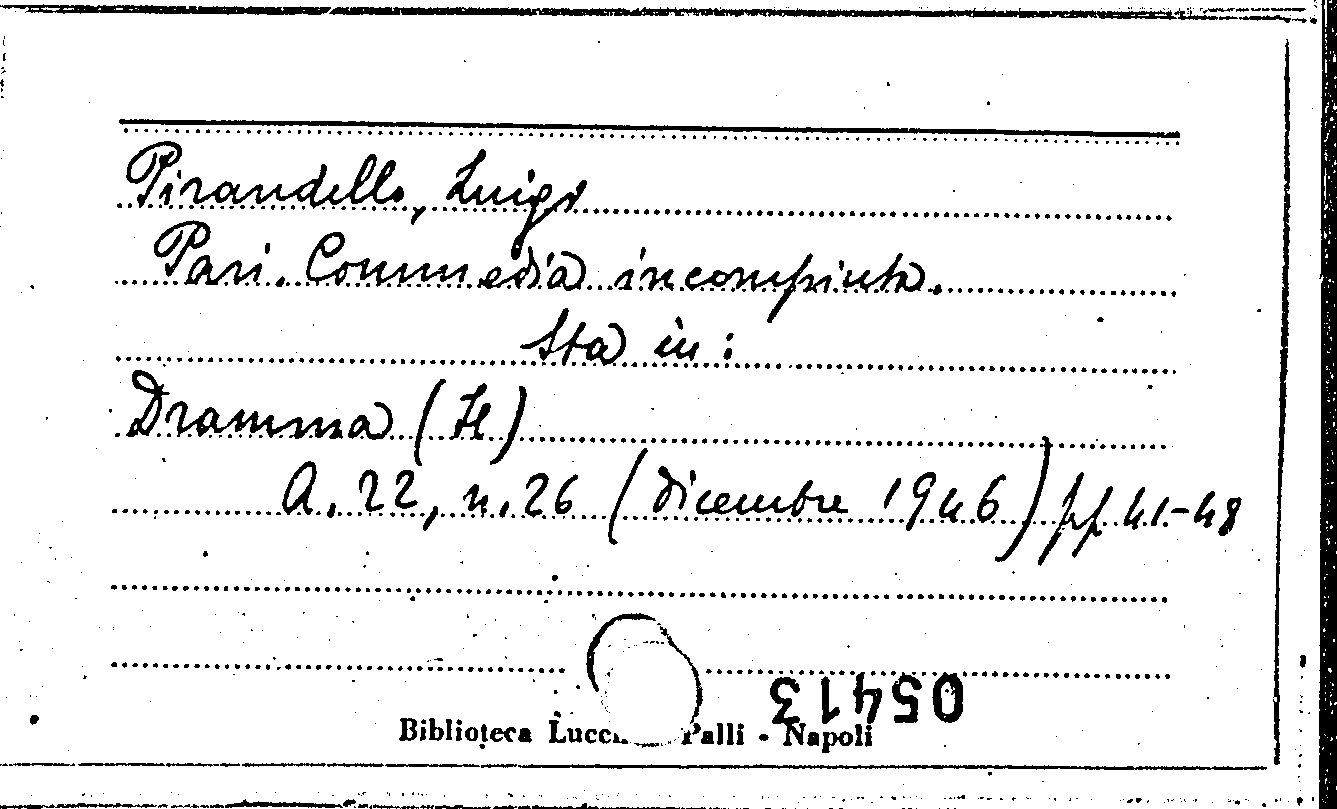 Pirandello, Luigi
Pari. Commedia incompiuta.
Sta in:
Dramma (Il)
A. 22, n. 26 (dicembre 1946) pp 41-48
05413
Biblioteca Palli - Napoli